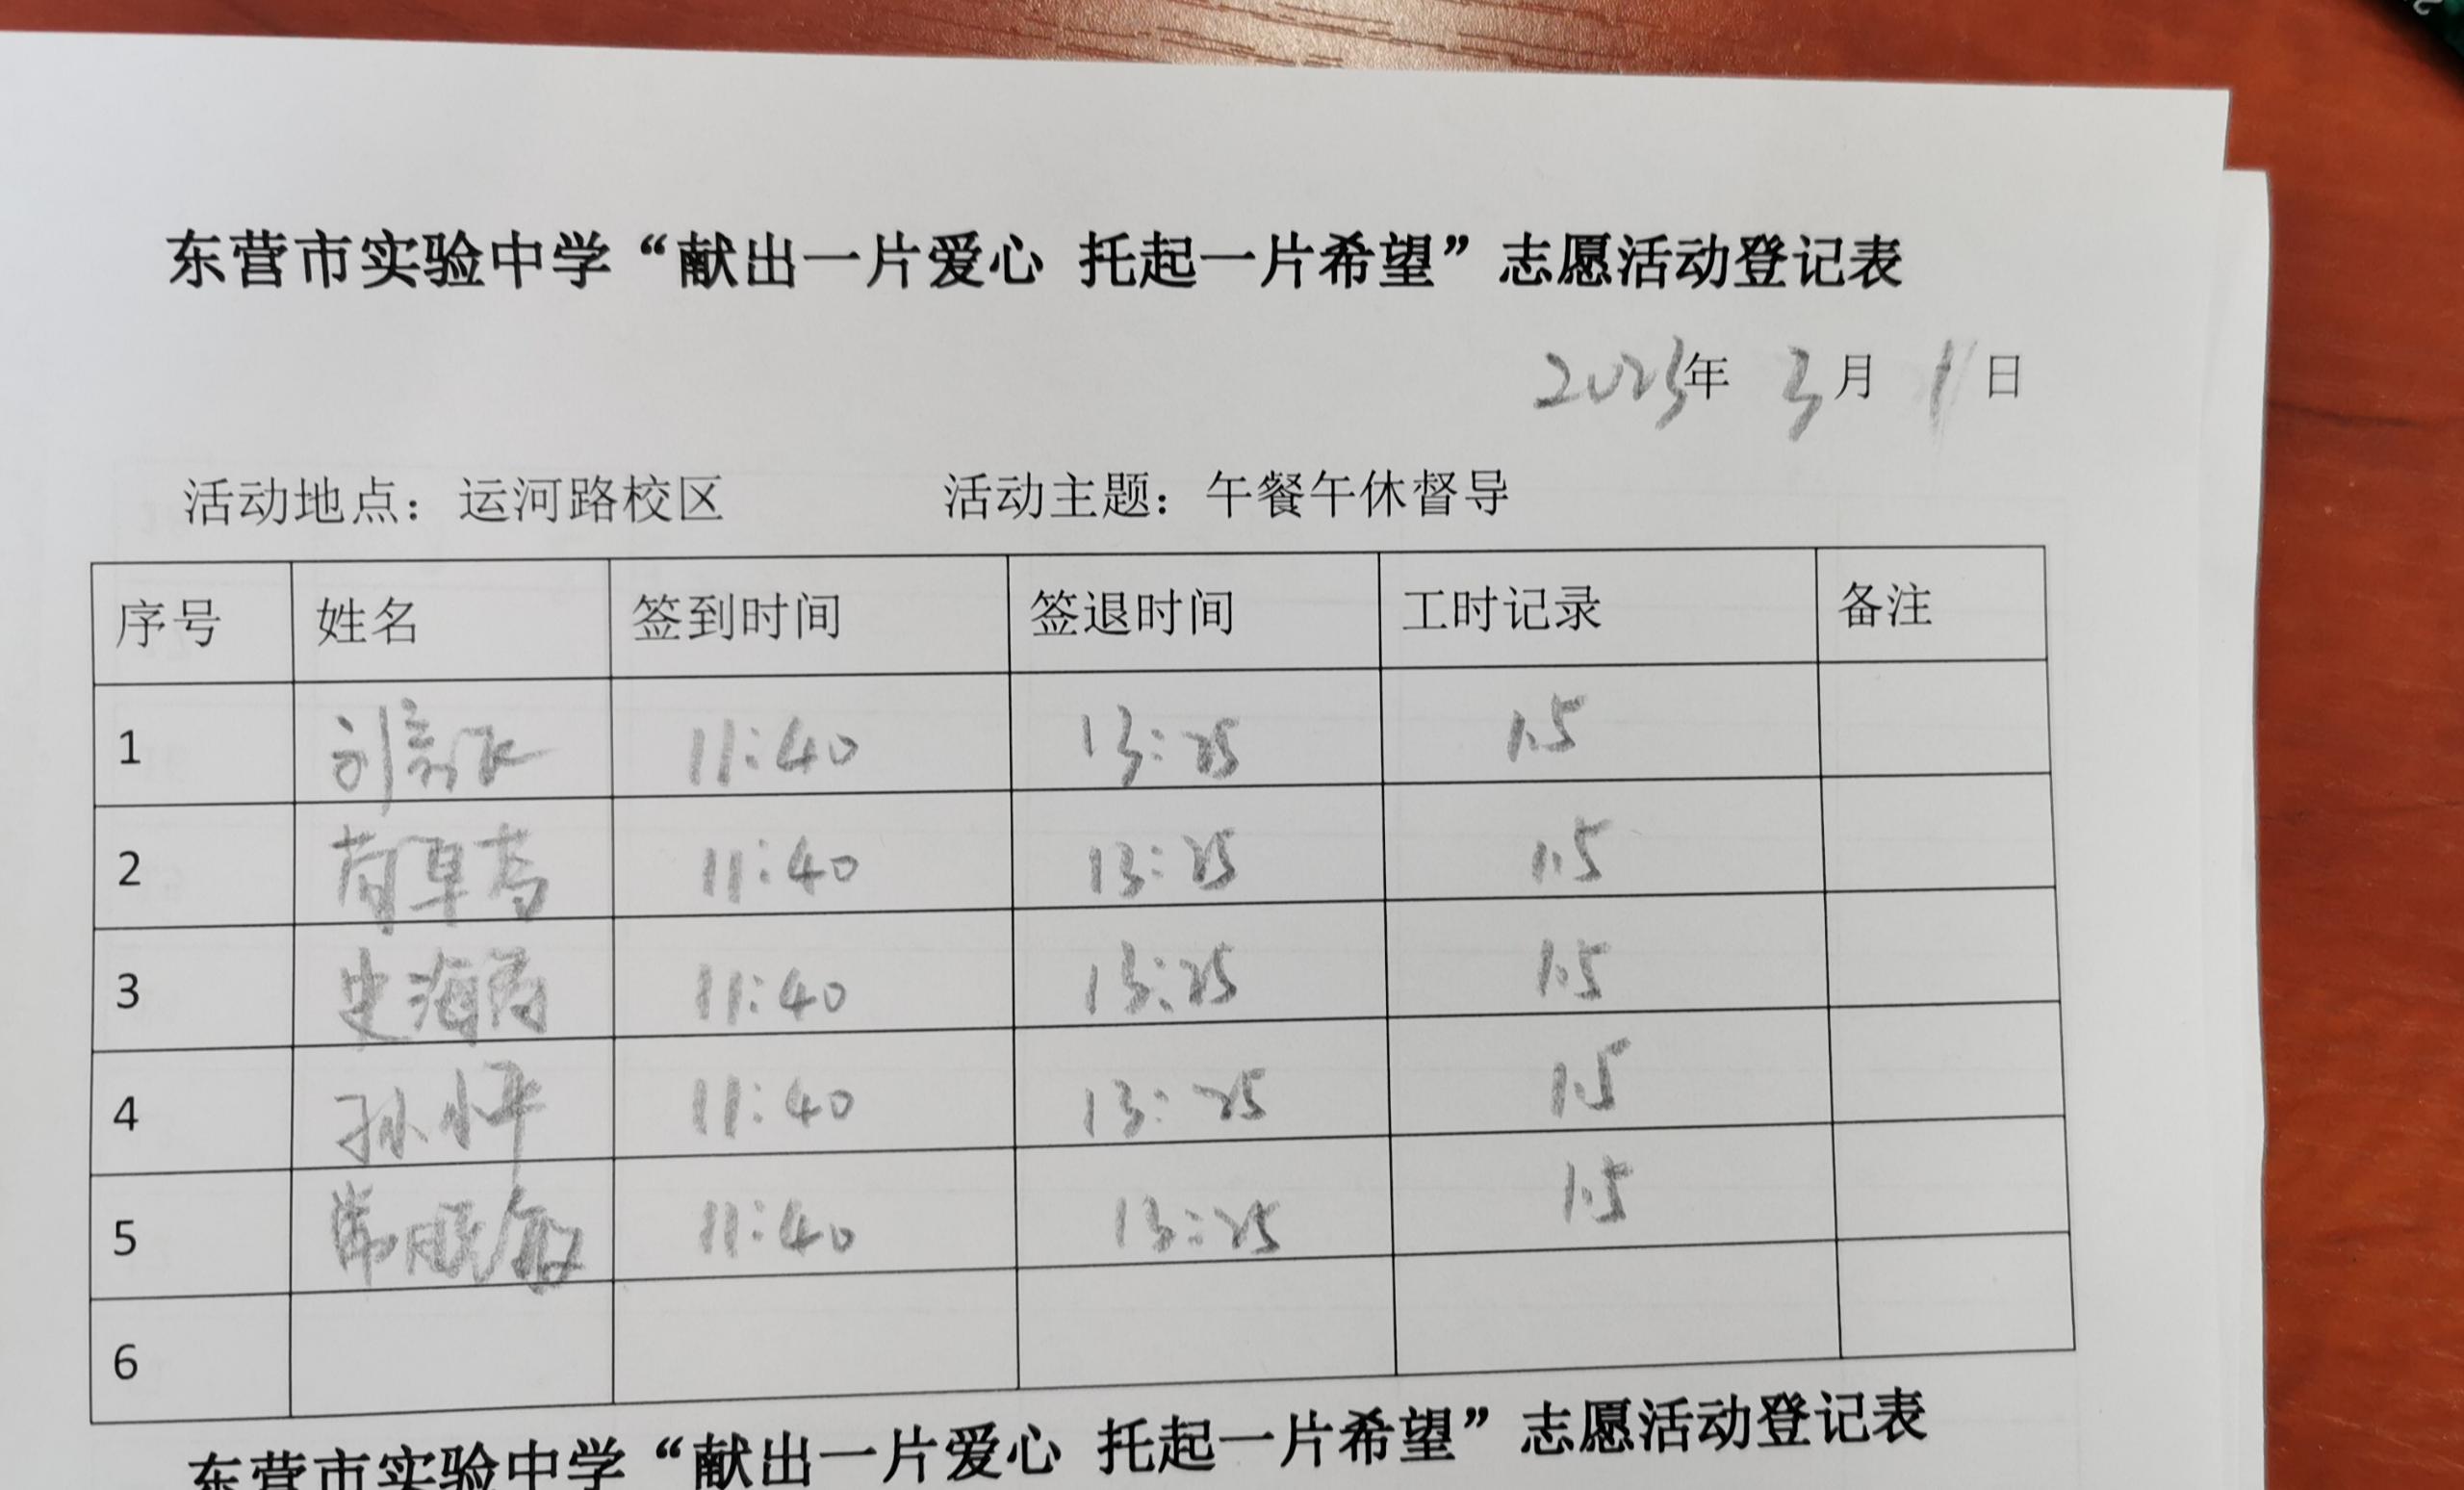 东营市实验中学“献出一片爱心 托起一片希望”志愿活动登记表
2023年 3月 1日
活动地点：运河路校区 活动主题：午餐午休督导
序号 姓名 签到时间 签退时间 工时记录 备注
1 刘 11:40 13:25 1.5
2 11:40 13:25 1.5
3 史海 11:40 13:25 1.5
4 孙 11:40 13:25 1.5
5 常晓敏 11:40 13:25 1.5
6
东营市实验中学“献出一片爱心 托起一片希望”志愿活动登记表